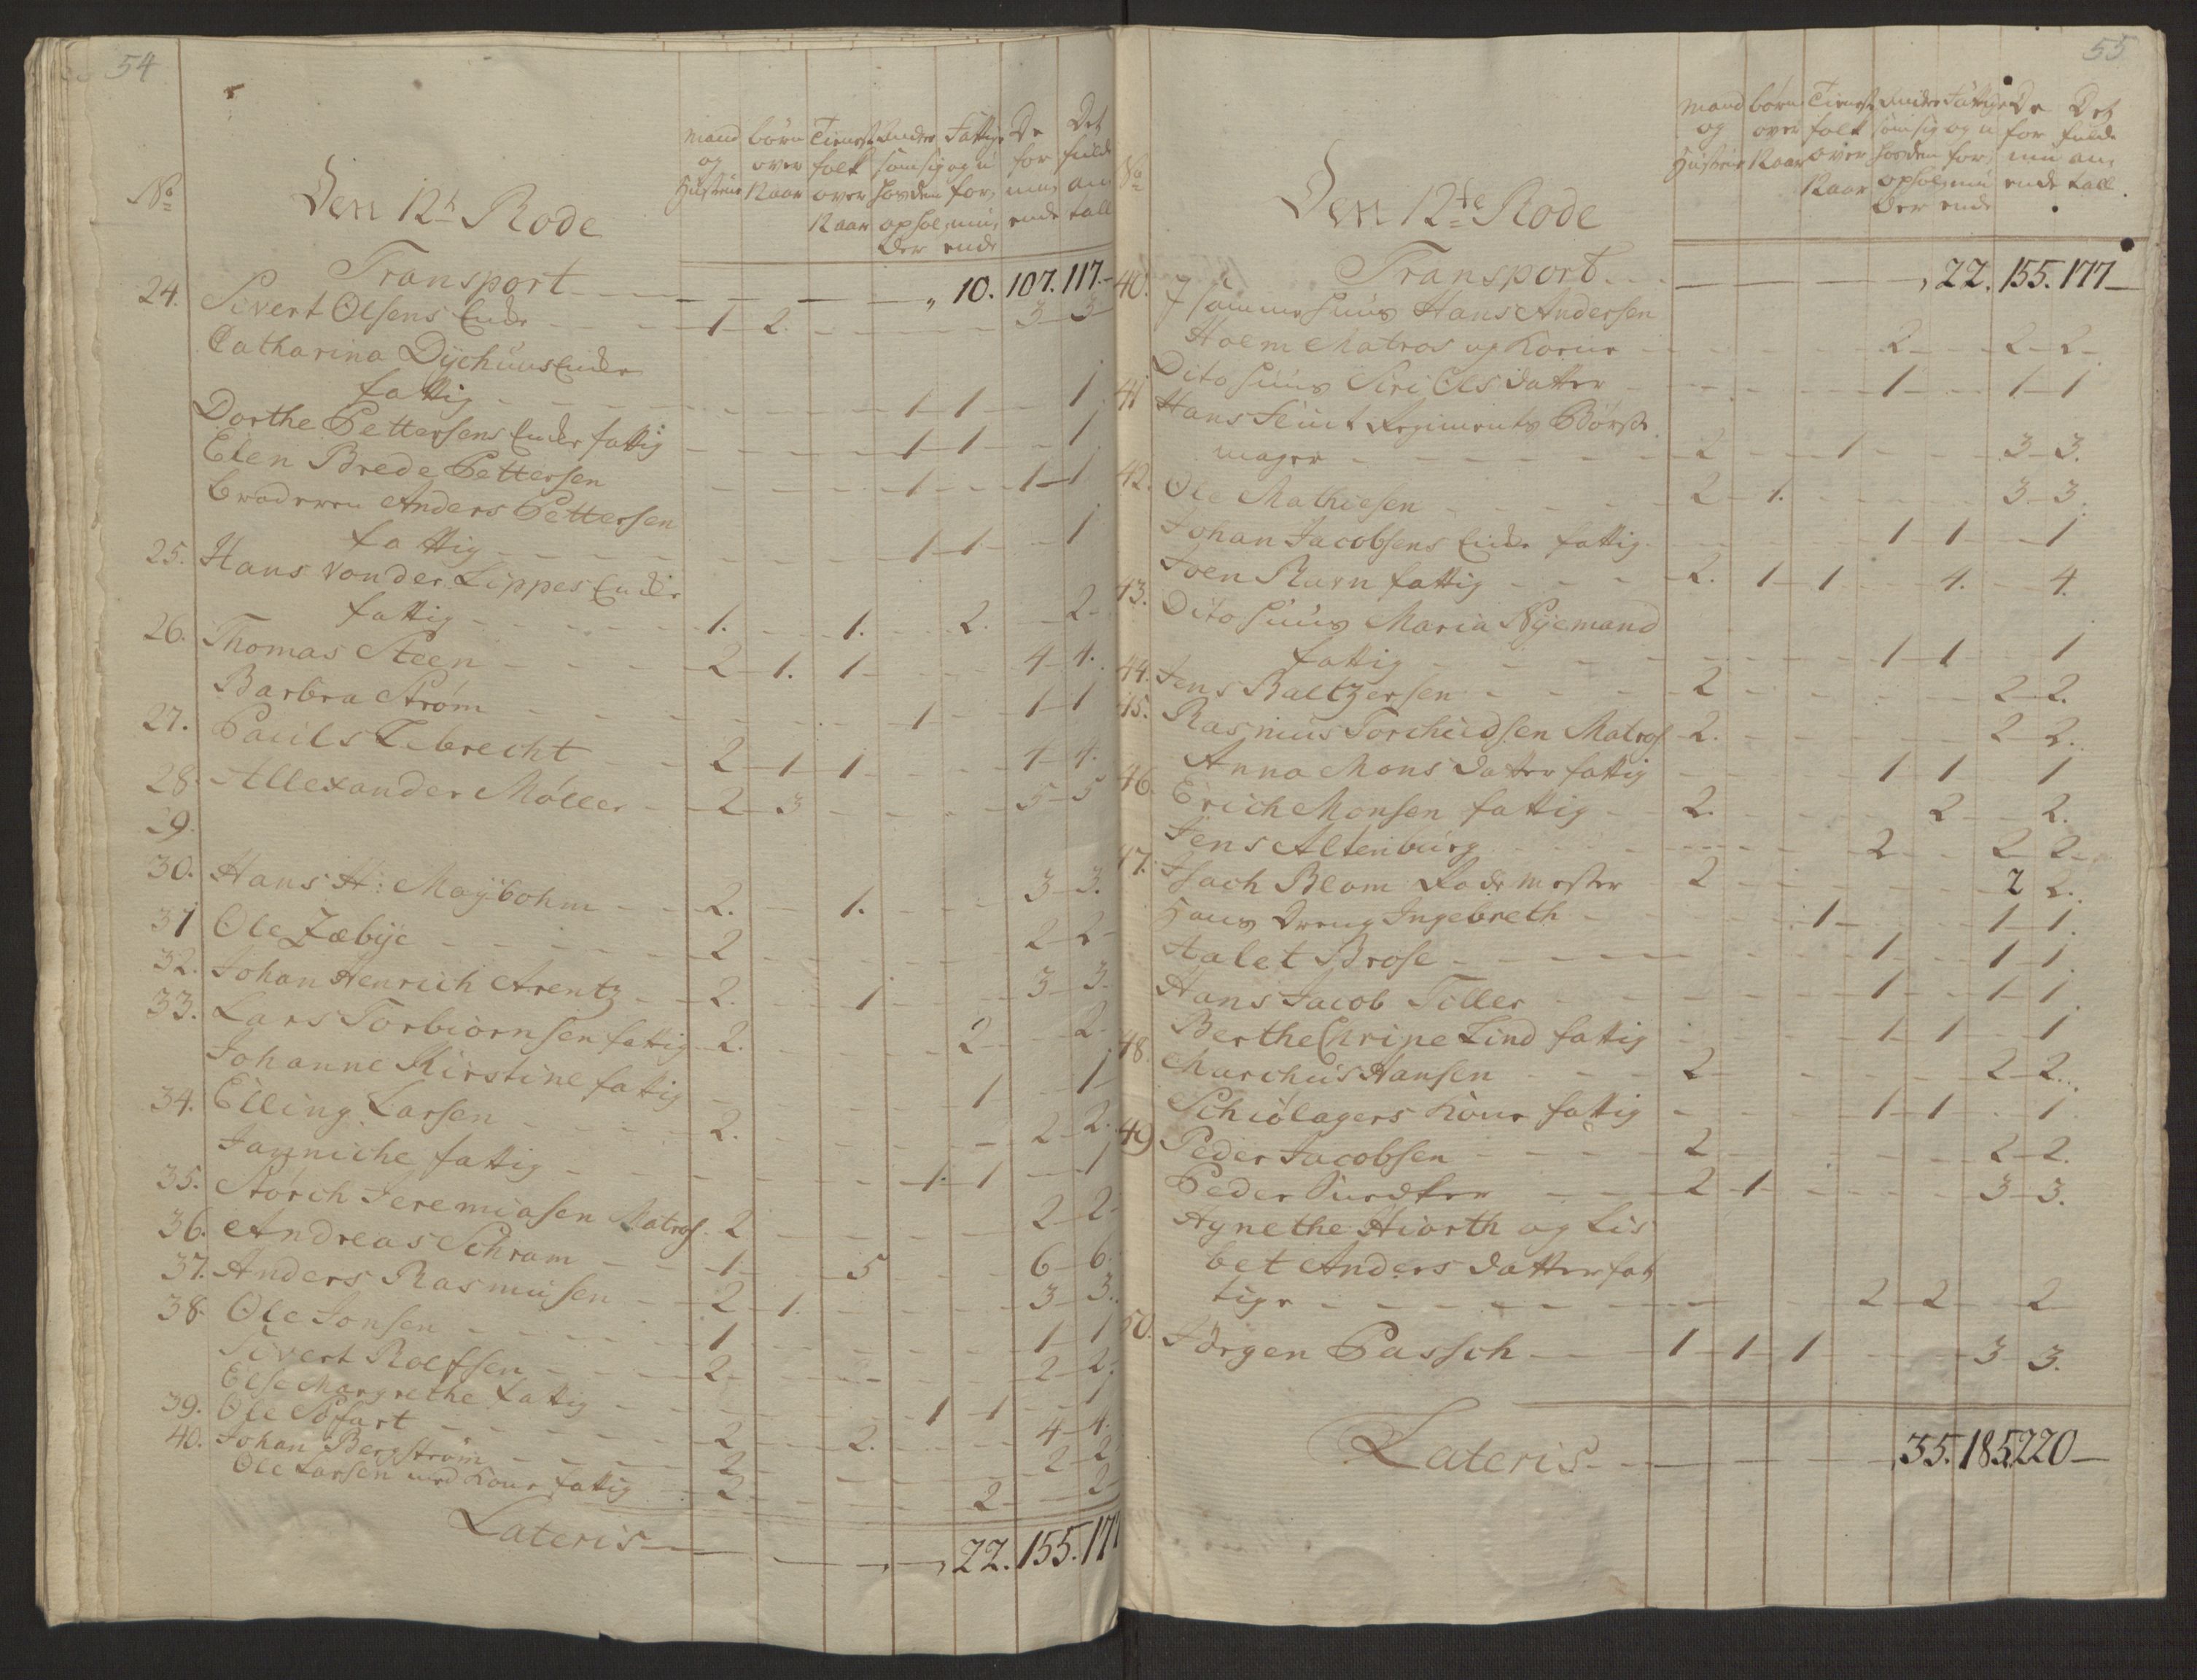 54
No
Den 12te Rode
Mand og Hustrue
børn over 12 aar
Tieneste folk over 12 aar
Andre som sig hos dem opholder
Fattige og uformuende
De formuende
Det fulde antall
Transport — — — — „ 10. 107. 117.
24. Sivert Olsens Enke — 1 2. — — — — 3 3
Catharina Dychuus Enke
fattig — — — — 1 1 — 1
Dorthe Pettersens Enke fattig — — — 1 1 — 1
Elen Brede Pettersen — — — 1 — 1 1
broderen Anders Pettersen
fattig — — — 1 1 — 1
25. Hans Vonder Lippes Enke
fattig — 1. — 1. — 2. — 2
26. Thomas Steen — 2 1. 1 — — 4 4.
Barbra Strøm — — — 1 — 1 1
27. Pauls Lebrecht — 2 1 1 — — 4 4.
28. Allexander Møller — 2 3 — — — 5 5
29.
30. Hans H: Maybohm — 2. — 1. — — 3 3.
31 Ole Zæbye — 2 — — — — 2 2
32. Johan Henrich Arentz — 2. — 1 — — 3 3.
33. Lars Torbiørnsen fattig 2. — — — 2 — 2.
Johanne Kirstine fattig — — — — 1 — 1
34. Elling Larsen — 2. — — — — 2 2.
Janniche fattig — — — 1. 1 — 1
35. Størch Jeremiasen Matros. 2 — — — — 2 2
36. Andreas Schram — 1 — 5 — — 6 6.
37. Anders Rasmusen — 2 1. — — — 3 3.
38. Ole Jonsen — 1 — — — — 1 1
Sivert Roefsen — 2 — — — — 2 2.
Else Margrethe fattig — — — 1 1 — 1
39. Ole — 2 — 2. — — 4 4.
40. Johan Bergstrøm — 2 — — — — 2 2
Ole Larsen med Kone fattig — 2 — — — 2 — 2
Lateris — — — — 22. 155. 177
55
No
Den 12te Rode
Mand og Hustrue
børn over 12 aar
Tieneste folk over 12 aar
Andre som sig hos dem opholder
Fattige og uformuende
De formuende
Det fulde antall.
Transport — — — — 22. 155. 177
40. J samme huus Hans Andersen
Holm Matros og Kone — — — 2 — 2 2
Dito huus Siri Olsdatter — — — 1 — 1 1
41 Hans Regiments Børse
mager — 2 — 1 — — 3 3.
42. Ole Mathiesen — 2 1. — — — 3 3.
Johan Jacobsens Enke fattig — — — 1 1 — 1
43. Joen Ravn fattig — 2. 1 1 — 4. — 4.
Dito huus Maria Nyemand
fattig — — — 1 1 — 1
44. Jens Baltzersen — 2 — — — — 2 2.
45. Rasmus Torchildsen Matros 2. — — — — 2 2.
Anna Monsdatter fattig — — — 1 1 — 1
46. Erich Monsen fattig — 2. — — — 2 — 2.
Jens Altenburg — — — 2 — 2 2
47. Isach Blom Rode Mester — 2 — — — — 2 2.
Hans dreng Ingebreth — — 1 — — 1 1.
Halet Brose — — — 1 — 1 1.
Hans Jacob Tiller — — — 1 — 1 1.
Berthe Chrine Lind fattig — — — 1 1 — 1
48. Marchus Hansen — 2 — — — — 2 2.
Schiólagers Kone fattig — — — 1 1 — 1
49 Peder Jacobsen — 2 — — — — 2 2.
Peder — 2 1 — — — 3 3.
Agnethe Hiorth og Lis
bet Anders datter fat
tige — — — 2 2 — 2
50. Jørgen Passch — 1 1 1 — — 3 3.
Lateris — — — — 35. 185. 220